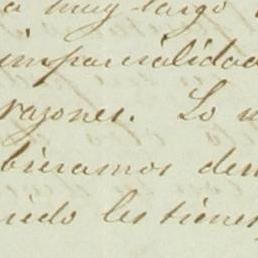 a muy largo
imparcialidad
razones. Lo
bieramos dem
iedo les tienes